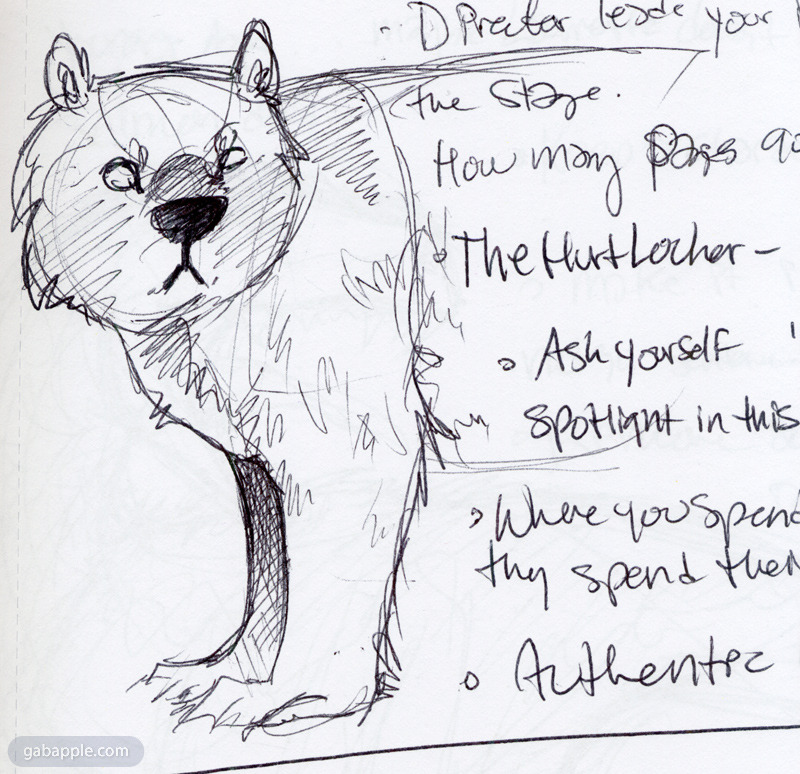 Director leads your
the stage.
How many pages go
The Hurt Locker -
Ask yourself
spotlight in this
Where you spend
thy spend their
Authentic
gabapple.com